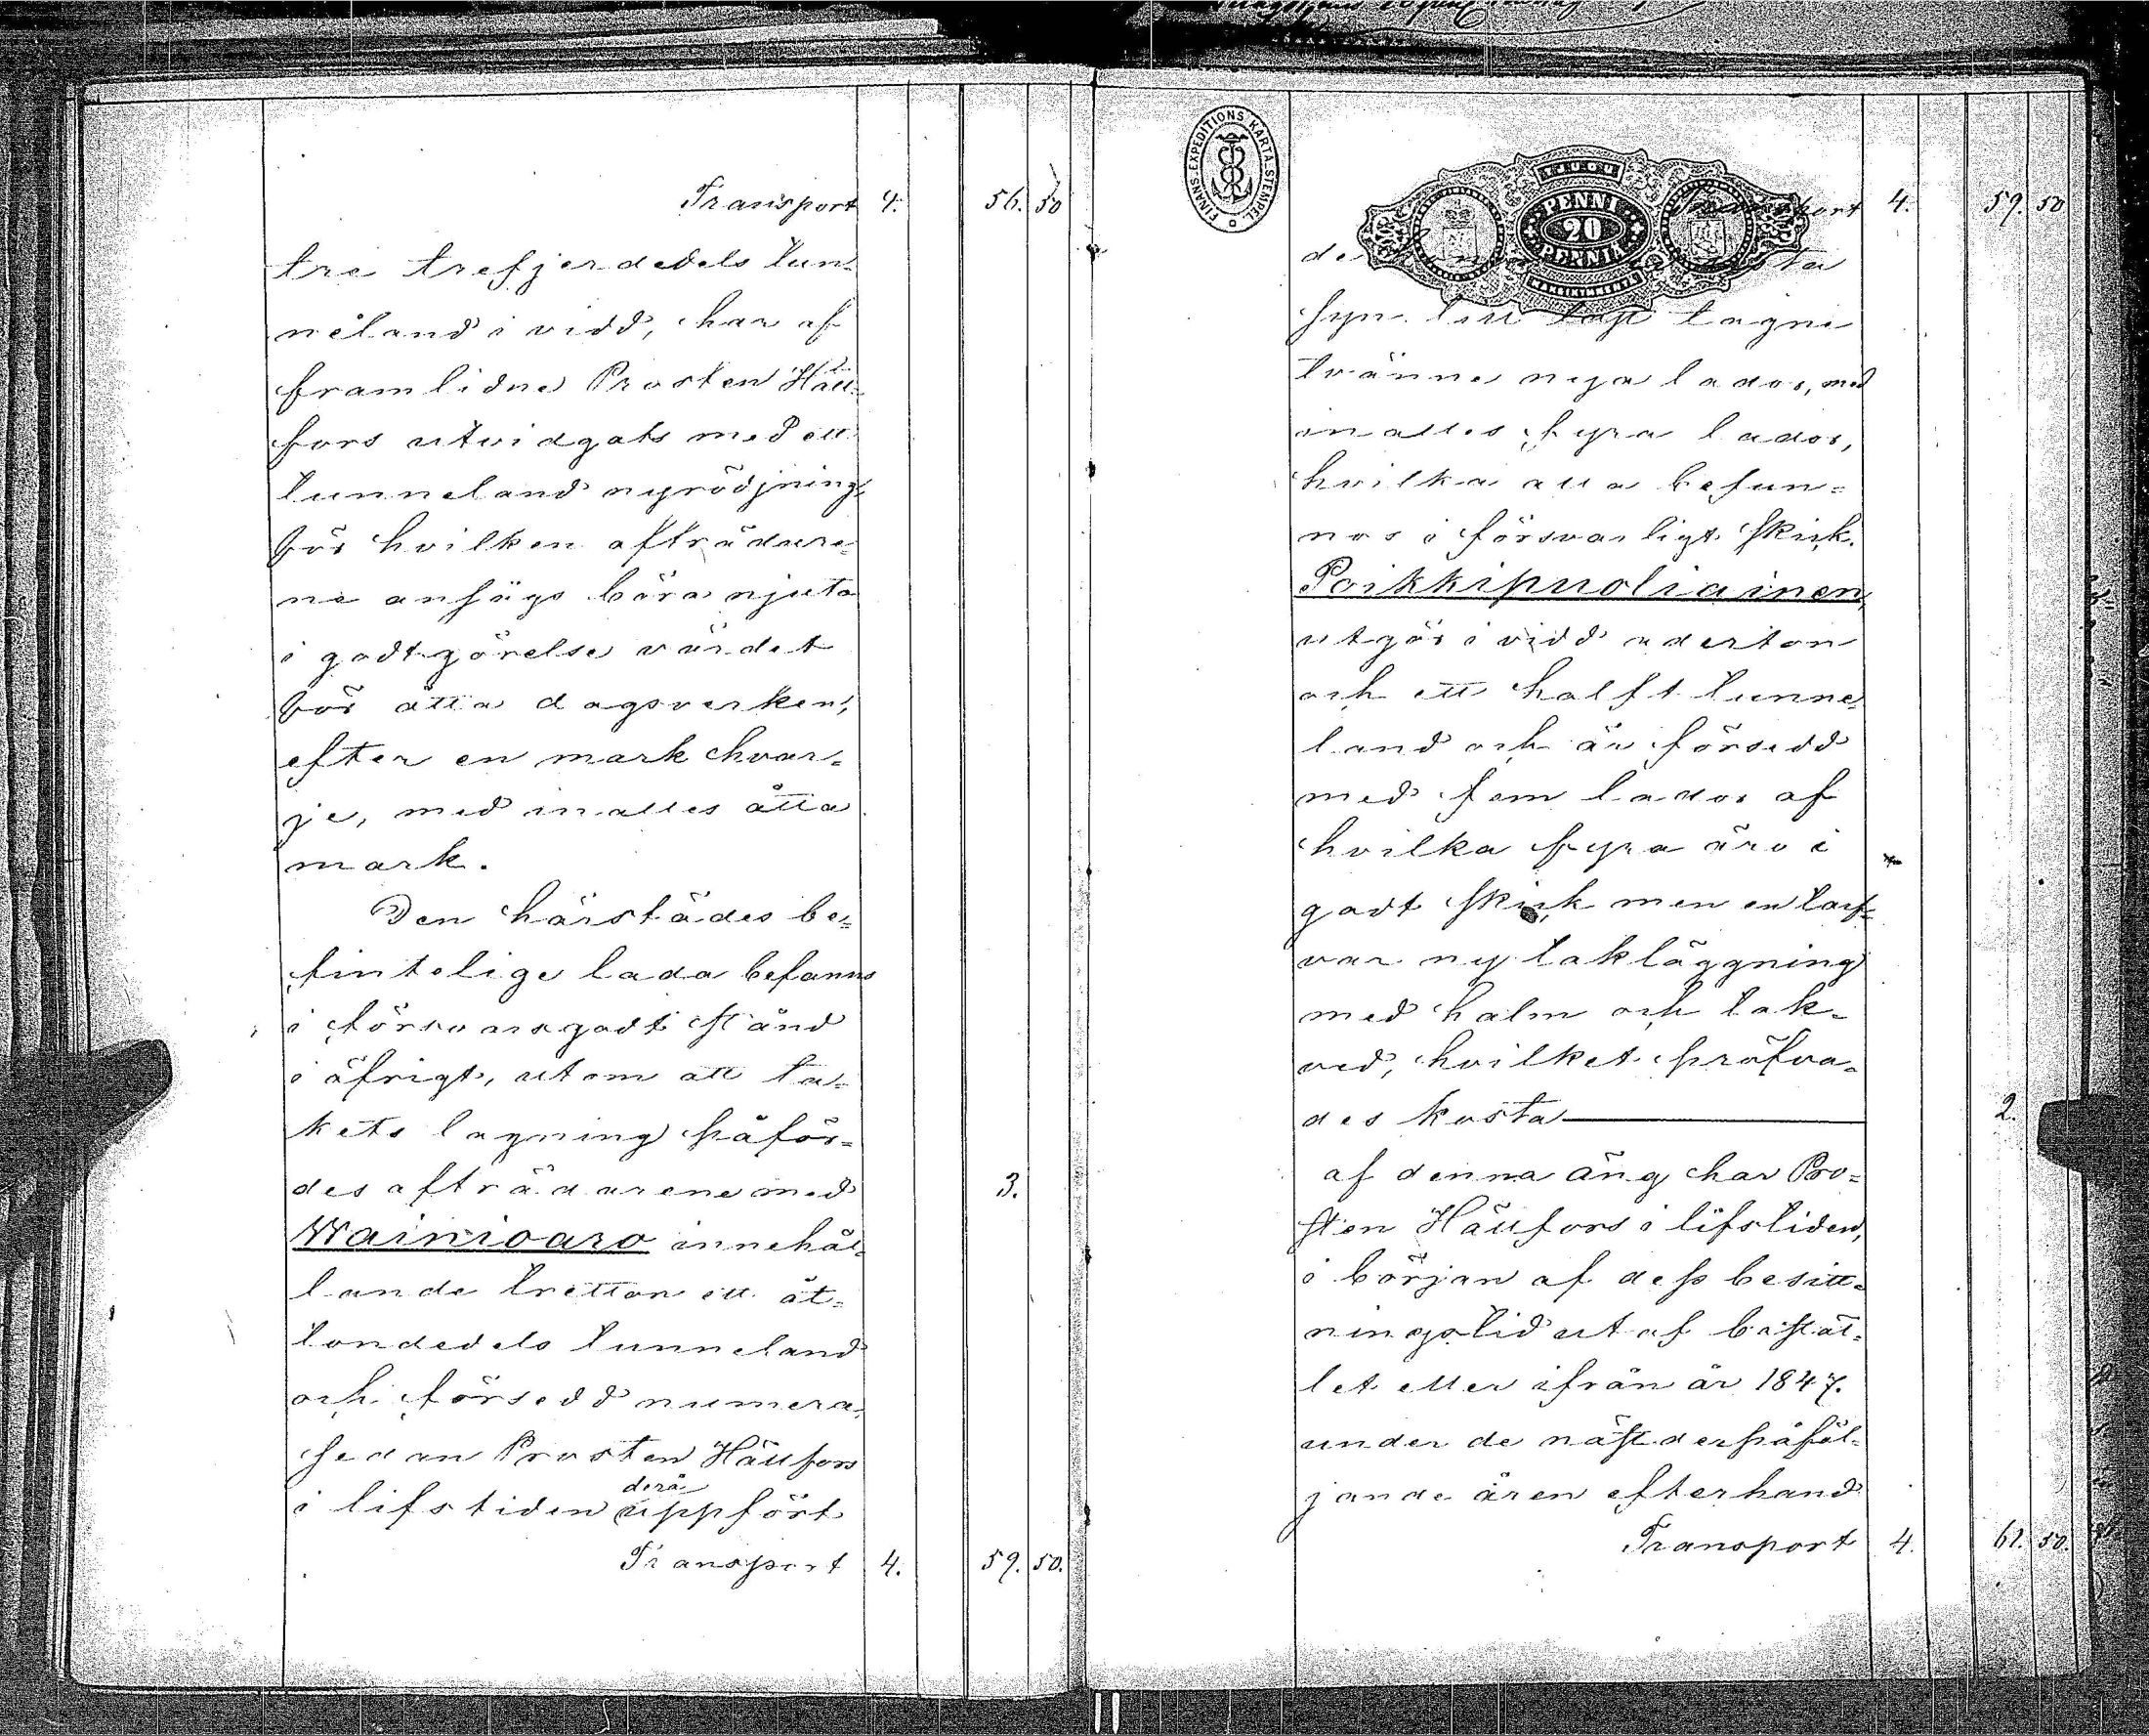 Transport 4. 56. 50
tre trefjerdedels tun-
neland i vidd, har af
framlidne Prosten Häll-
fors utvidgats med ett
tunneland nyrödjning,
för hvilken afträdare-
ne ansågs böra njuta
i godtgörelse värdet
för åtta dagsverken,
efter en mark hvar-
je, med inalles åtta
mark.
Den härstädes be-
fintelige lada befanns
i försvarsgodt stånd
i öfrigt, utom att ta-
kets lagning påför-
des afträdarene med 3.
Wainioaro innehål-
lande tretton ett åt-
tondedels tunneland
och försedd numera,
sedan Prosten Hällfors
derå
i lifstiden uppfört
Transport 4. 59. 50.
FINANS-EXPEDITIONS KARTA-STEMPEL
PENNI
20
PENNIÄ
Transport 4. 59. 50
syn
tagne
tvänne nya lador, med
inalles fyra lador,
hvilka alla befun-
nos i försvarligt skick.
Poikkipuoliainen,
utgör i vidd aderton
och ett halft tunne-
land och är försedd
med fem lador af
hvilka fyra äro i
godt skick men en tarf-
var ny takläggning
med halm och tak-
ved, hvilket pröfva-
des kosta 2.
af denna äng har Pro-
sten Hällfors i lifstiden,
i början af dess besitt-
ningstid utaf bostäl-
let eller ifrån år 1847.
under de näst derpåföl-
jande åren efterhand
Transport 4. 61. 50.